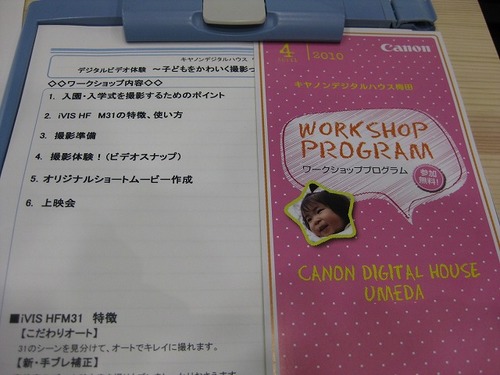 キヤノンデジタルハウス
デジタルビデオ体験 ～子どもをかわいく撮影
◇◇ワークショップ内容◇◇
1. 入園・入学式を撮影するためのポイント
2. iVIS HF M31の特徴、使い方
3. 撮影準備
4. 撮影体験！(ビデオスナップ)
5. オリジナルショートムービー作成
6. 上映会
■iVIS HFM31 特徴
【こだわりオート】
31のシーンを見分けて、オートでキレイに撮れます。
【新・手ブレ補正】
4 2010
Canon
キヤノンデジタルハウス梅田
WORKSHOP
PROGRAM
ワークショッププログラム
参加
無料!
CANON DIGITAL HOUSE
UMEDA